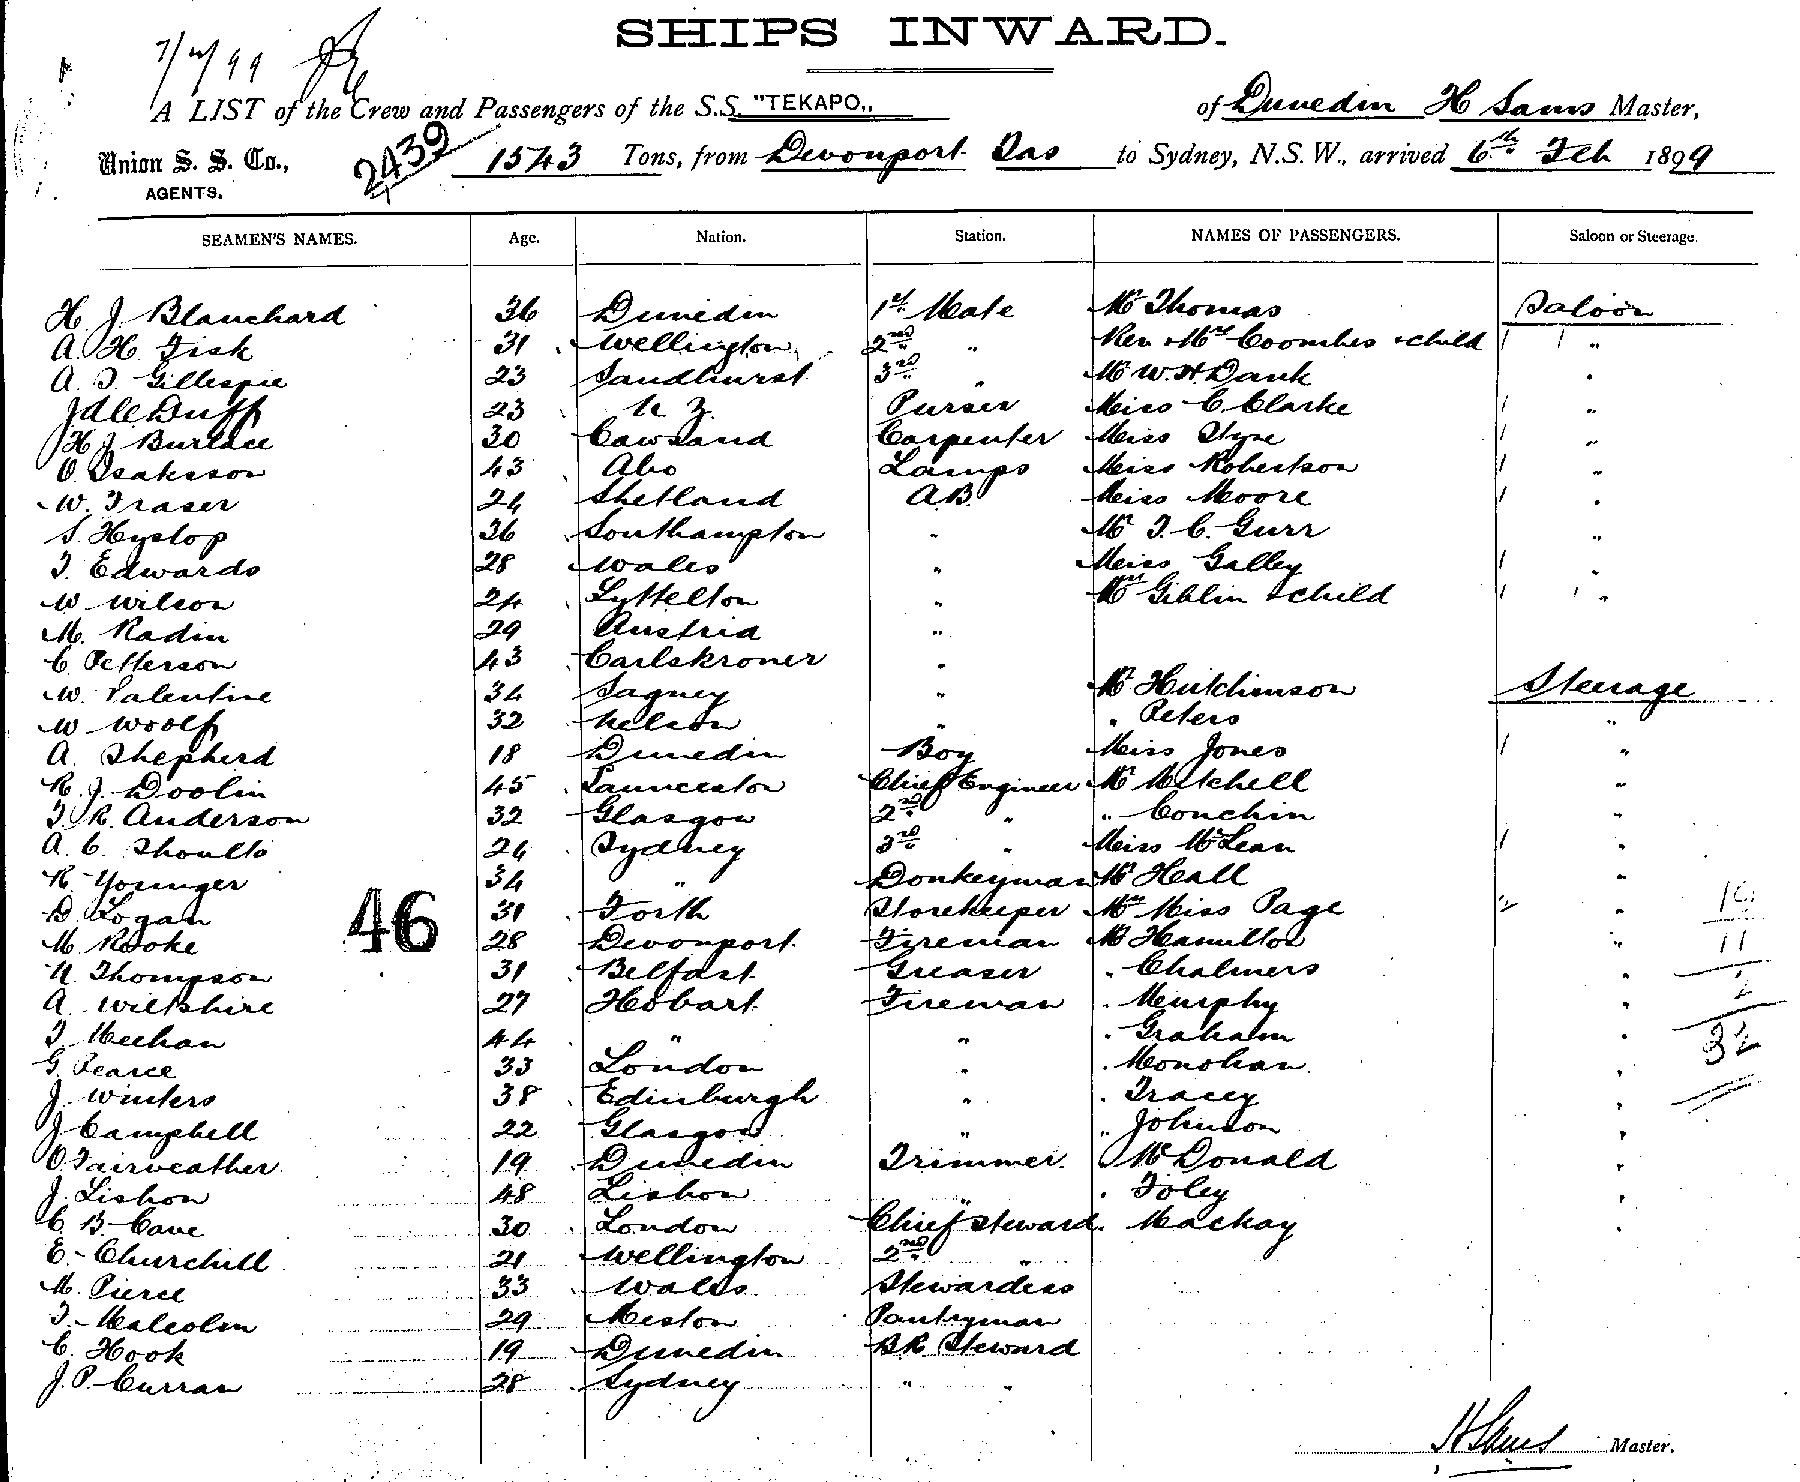 SHIPS INWARD.
7/2/99
A LIST of the Crew and Passengers of the S.S. "TEKAPO,, of Dunedin H Sams Master,
Union S. S. Co., AGENTS. 2439 1543 Tons, from Devonport Tas to Sydney, N.S.W., arrived 6th Feb 1899
SEAMEN'S NAMES. Age. Nation. Station. NAMES OF PASSENGERS. Saloon or Steerage.
H. J. Blanchard 36 Dunedin 1st Mate Mr Thomas Saloon
A. H. Fisk 31 Wellington 2nd " Rev & Mrs Coombes & child "
A. T. Gillespie 23 Sandhurst 3rd " Mr W. H. Dank "
J d C Duff 23 N. Z. Purser Miss C. Clarke "
H J Burlace 30 Cawsand Carpenter Miss Hype "
O Isaksson 43 Abo Lamps Miss Robertson "
W. Fraser 24 Shetland AB Miss Moore "
S. Hyslop 36 Southampton " Mr T. C. Gurr "
T. Edwards 28 Wales " Miss Galley "
W Wilson 24 Lyttelton " Mrs Giblin & child "
M. Radin 29 Austria "
C Petterson 43 Carlskroner "
W. Valentine 34 Sagney " Mr Hutchinson Steerage
W Woolf 32 Nelson " " Peters "
A. Shepherd 18 Dunedin Boy Miss Jones "
R. J. Doolin 45 Launceston Chief Engineer Mr Mitchell "
T. R. Anderson 32 Glasgow 2nd " " Conchin "
A. C. Shoults 24 Sydney 3rd " Miss McLean "
R. Younger 34 " Donkeyman Mr Hall "
D. Logan 31 Forth Storekeeper Mrs Miss Page "
46
M. Rooke 28 Devonport Fireman Mr Hamilton " 11
N Thompson 31 Belfast Greaser " Chalmers "
A Wiltshire 27 Hobart Fireman " Murphy "
T. Meehan 44 " " " Graham " 32
G. Pearce 33 London " " Monohan "
J. Winters 38 Edinburgh " " Tracey "
J Campbell 22 Glasgow " " Johnson "
O Fairweather 19 Dunedin Trimmer " McDonald "
J. Lisbon 48 Lisbon " " Foley "
C. B. Cave 30 London Chief Steward " Mackay "
E. Churchill 21 Wellington 2nd "
M. Pierce 33 Wales Stewardess
T. Malcolm 29 Meston Pantryman
C. Hook 19 Dunedin B.R. Steward
J. P. Curran 28 Sydney " "
H Sams Master.